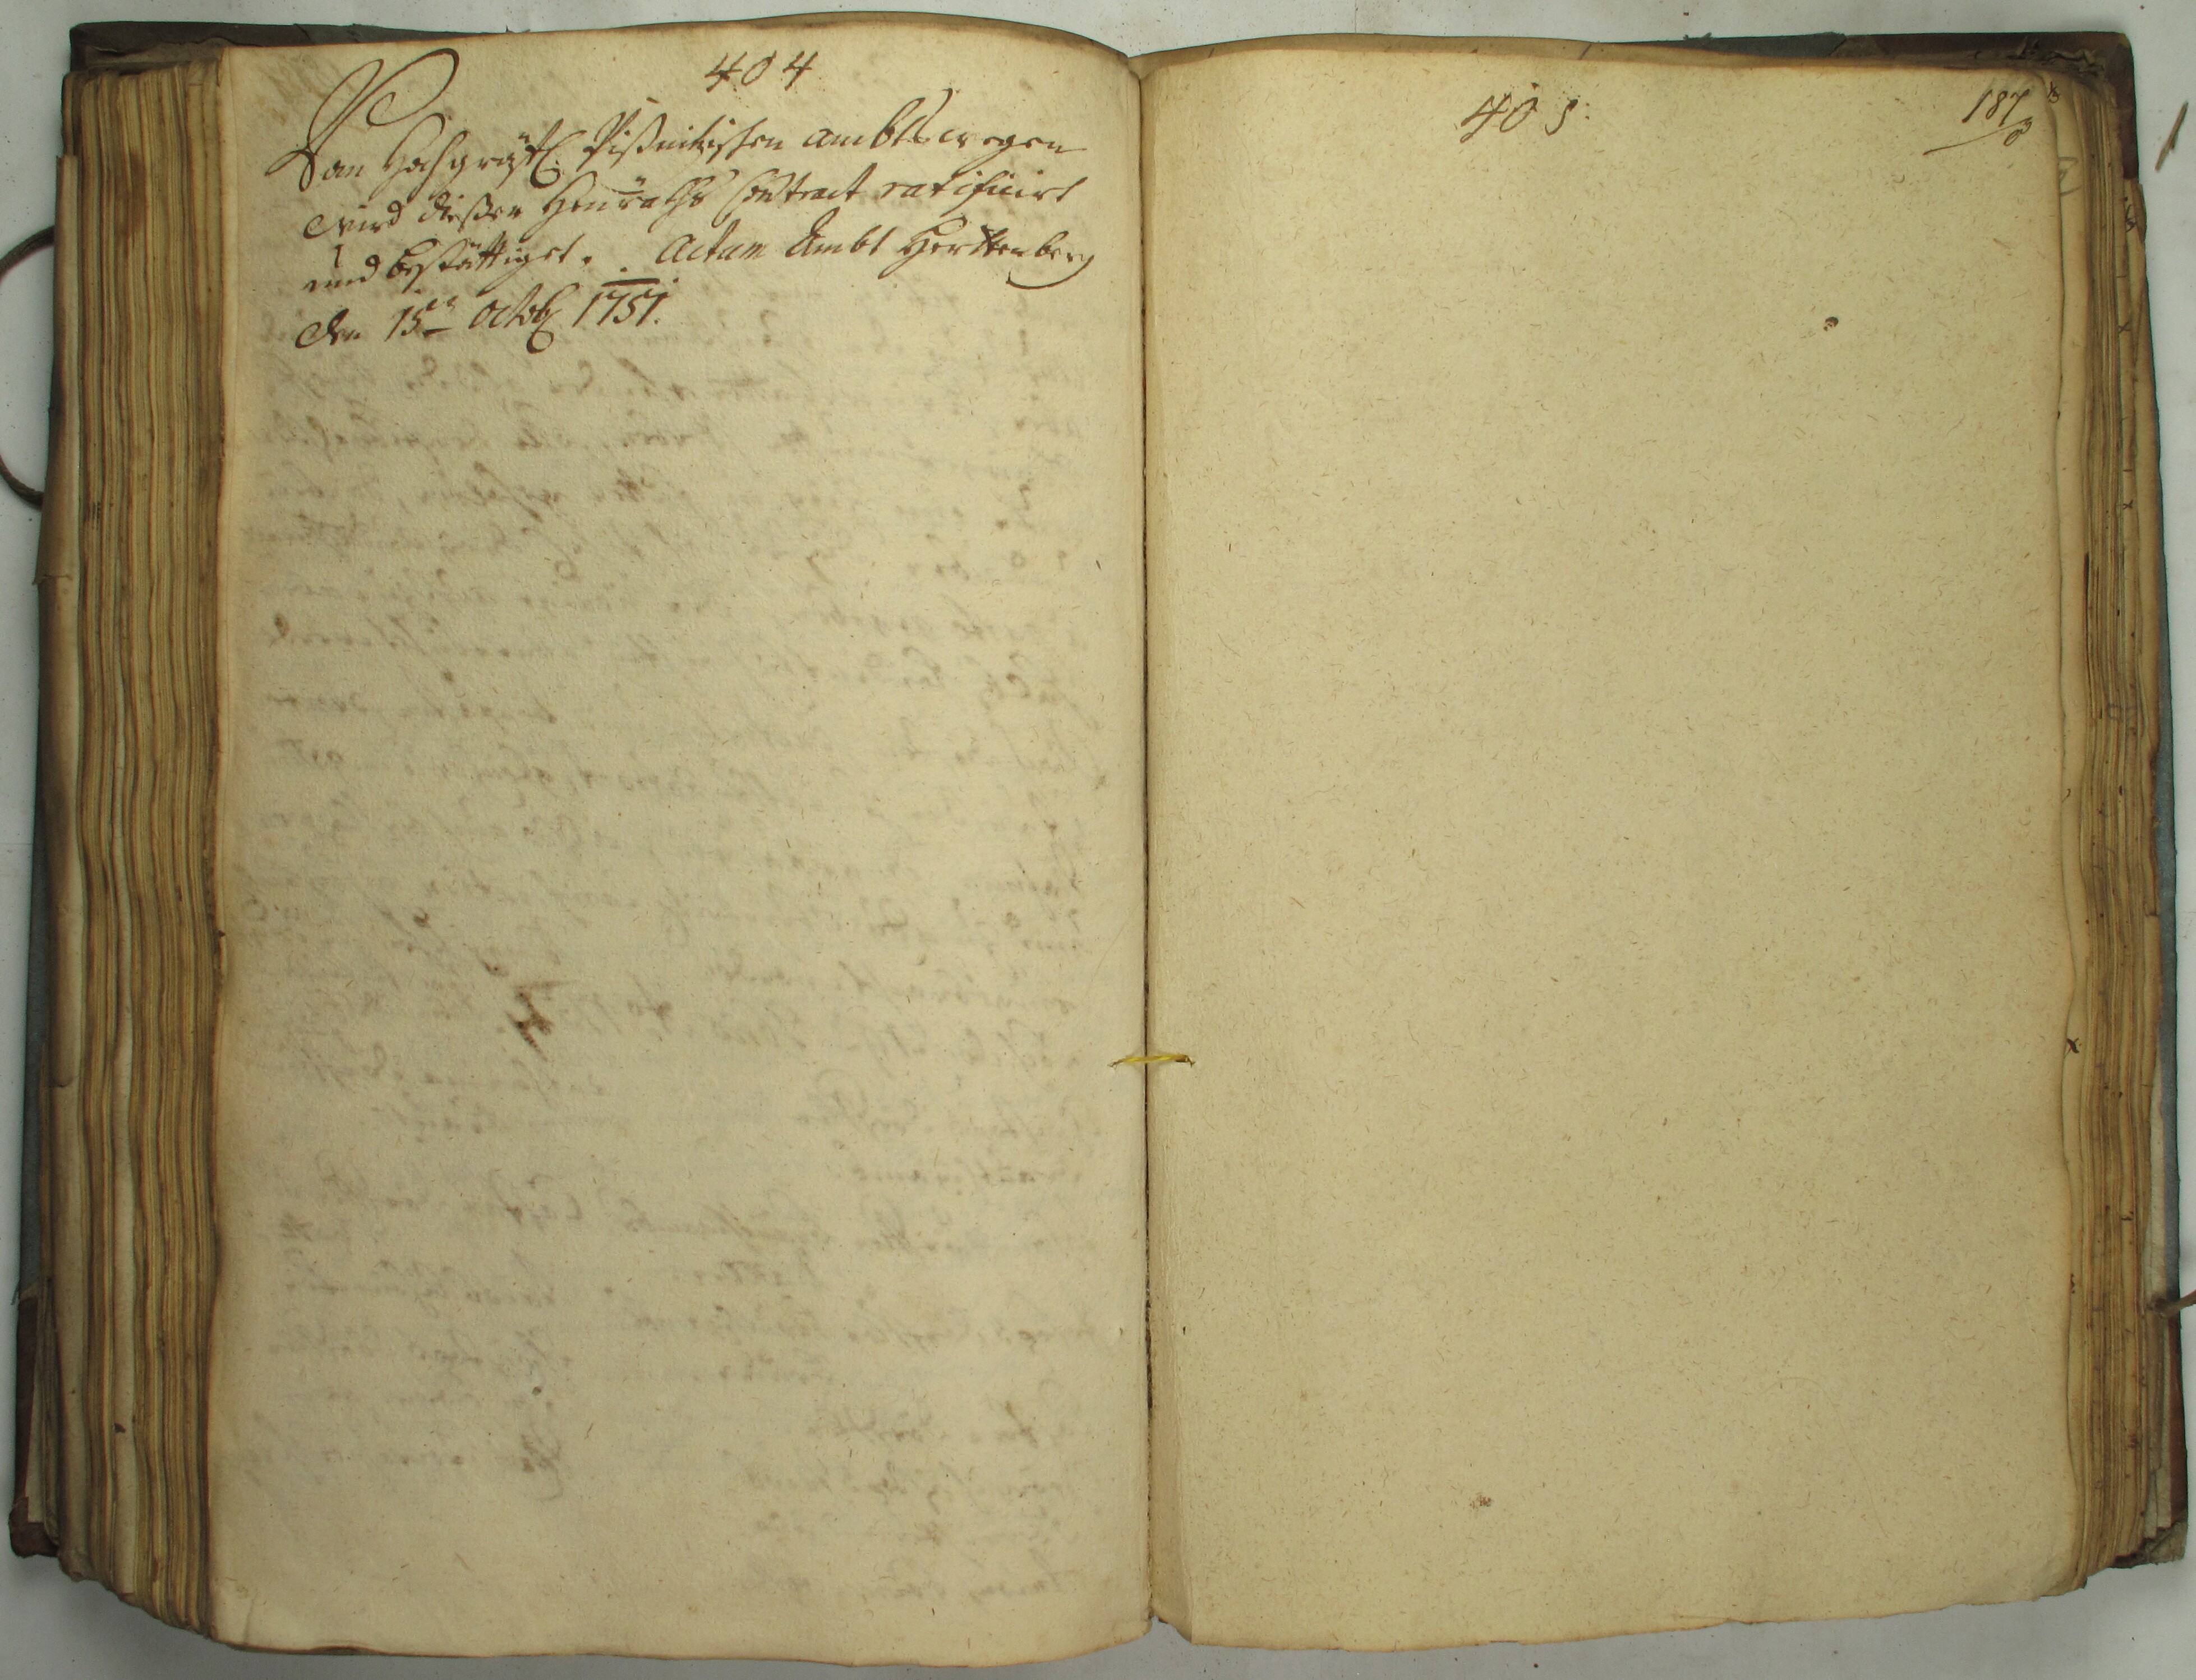 404
Von Hochgräfl. Pißnitzischen ambts wegen
wird dießer Heuraths Contract ratificirt
und bestättiget. Actum Ambt Hertenberg
den 15ten Octob. 1751.
405.
187